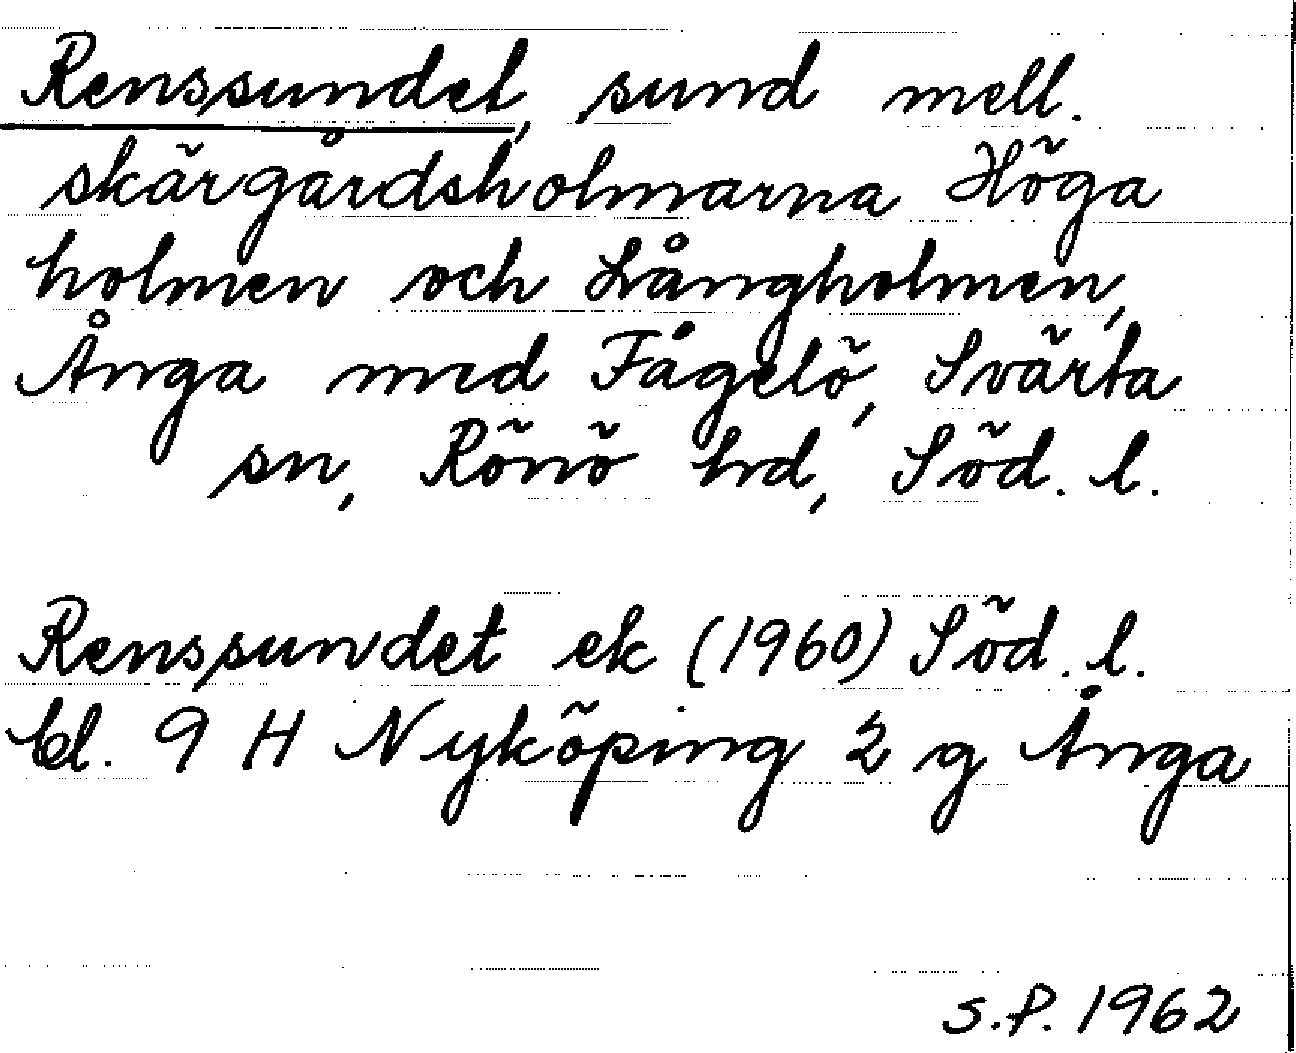 Renssundet, sund mell.
skärgårdsholmarna Höga
holmen och Långholmen,
Ånga med Fågelö, Svärta
sn, Rönö hd, Söd. l.
Renssundet ek (1960) Söd. l.
bl. 9 H Nyköping 2 g Ånga
S.P. 1962